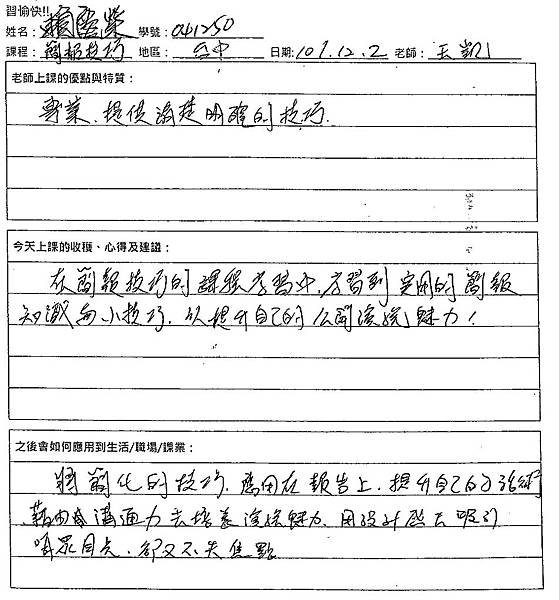 習愉快!!
姓名: 賴啓榮 學號: 041250
課程: 簡報技巧 地區: 台中 日期: 109.12.2 老師: 王凱
老師上課的優點與特質:
專業、提供清楚明確的技巧.
今天上課的收穫、心得及建議:
在簡報技巧的課程學習中,學習到實用的簡報
知識與小技巧,以提升自己的公開演說魅力!
之後會如何應用到生活/職場/課業:
將簡化的技巧,應用在報告上,提升自己的話術
藉由 溝通力去培養演說魅力,用設計 去吸引
目光,卻又不失焦點